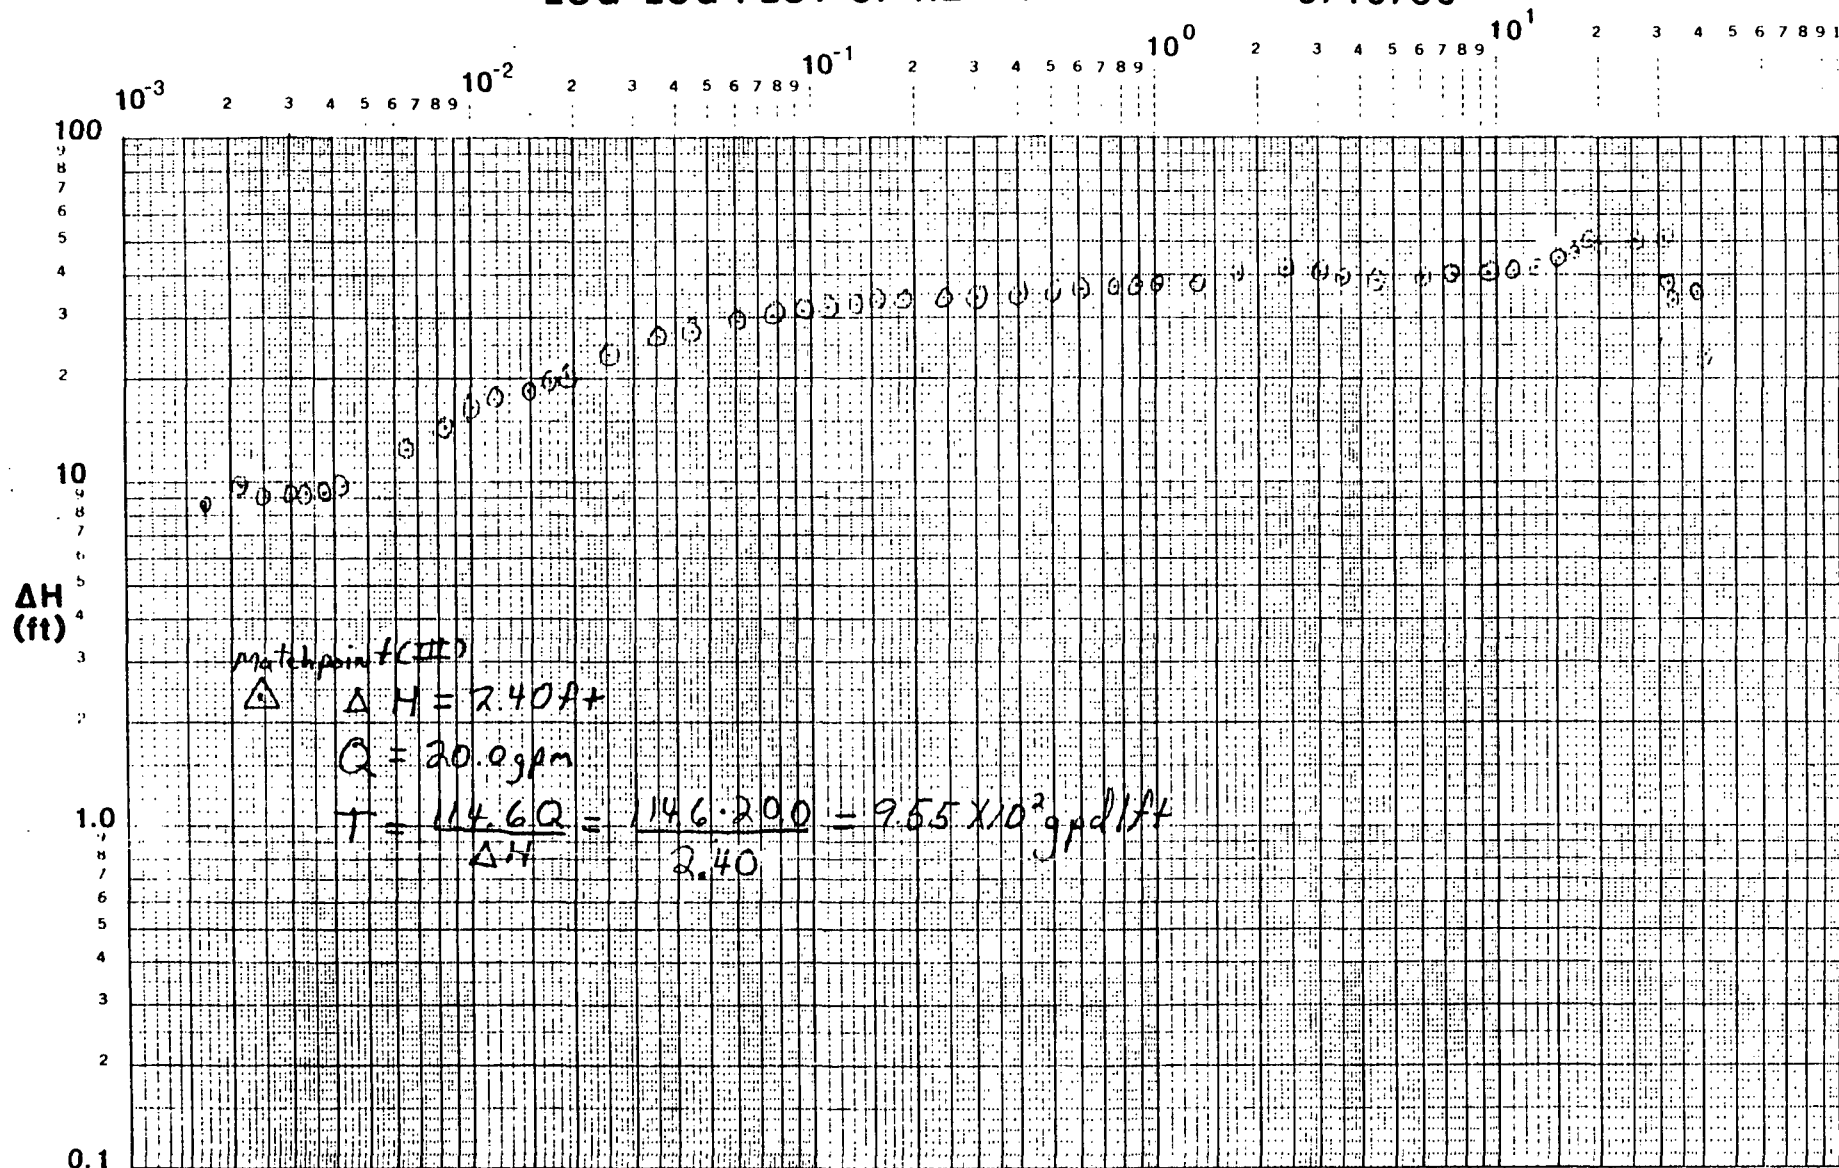 LOG-LOG PLOT OF
10⁻³ 2 3 4 5 6 7 8 9 10⁻² 2 3 4 5 6 7 8 9 10⁻¹ 2 3 4 5 6 7 8 9 10⁰ 2 3 4 5 6 7 8 9 10¹ 2 3 4 5 6 7 8 9 1
100
9
8
7
6
5
4
3
2
10
9
8
7
6
5
ΔH
(ft)
4
3
2
1.0
9
8
7
6
5
4
3
2
0.1
Matchpoint (III)
Δ H = 2.40ft
Q = 20.0gpm
T = 114.6Q = 114.6·20.0 = 9.55 X10² gpd/ft
ΔH 2.40